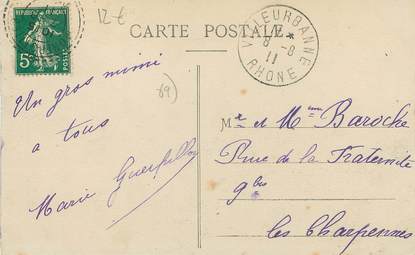 12€
CARTE POSTALE
RÉPUBLIQUE FRANÇAISE
5c
POSTES
VILLEURBANNE
8 - 8
11
RHONE
69)
Un gros mimi
a tous
Marie
Mr et Mme Baroche
Rue de la Fraternité
les Charpennes